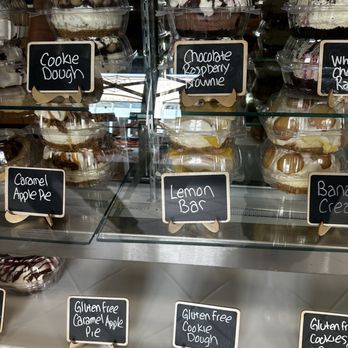 Cookie
Dough
Chocolate
Raspberry
Brownie
Caramel
Apple Pie
Lemon
Bar
Gluten Free
Caramel Apple
Pie
Gluten Free
Cookie
Dough
Gluten Free
Cookies